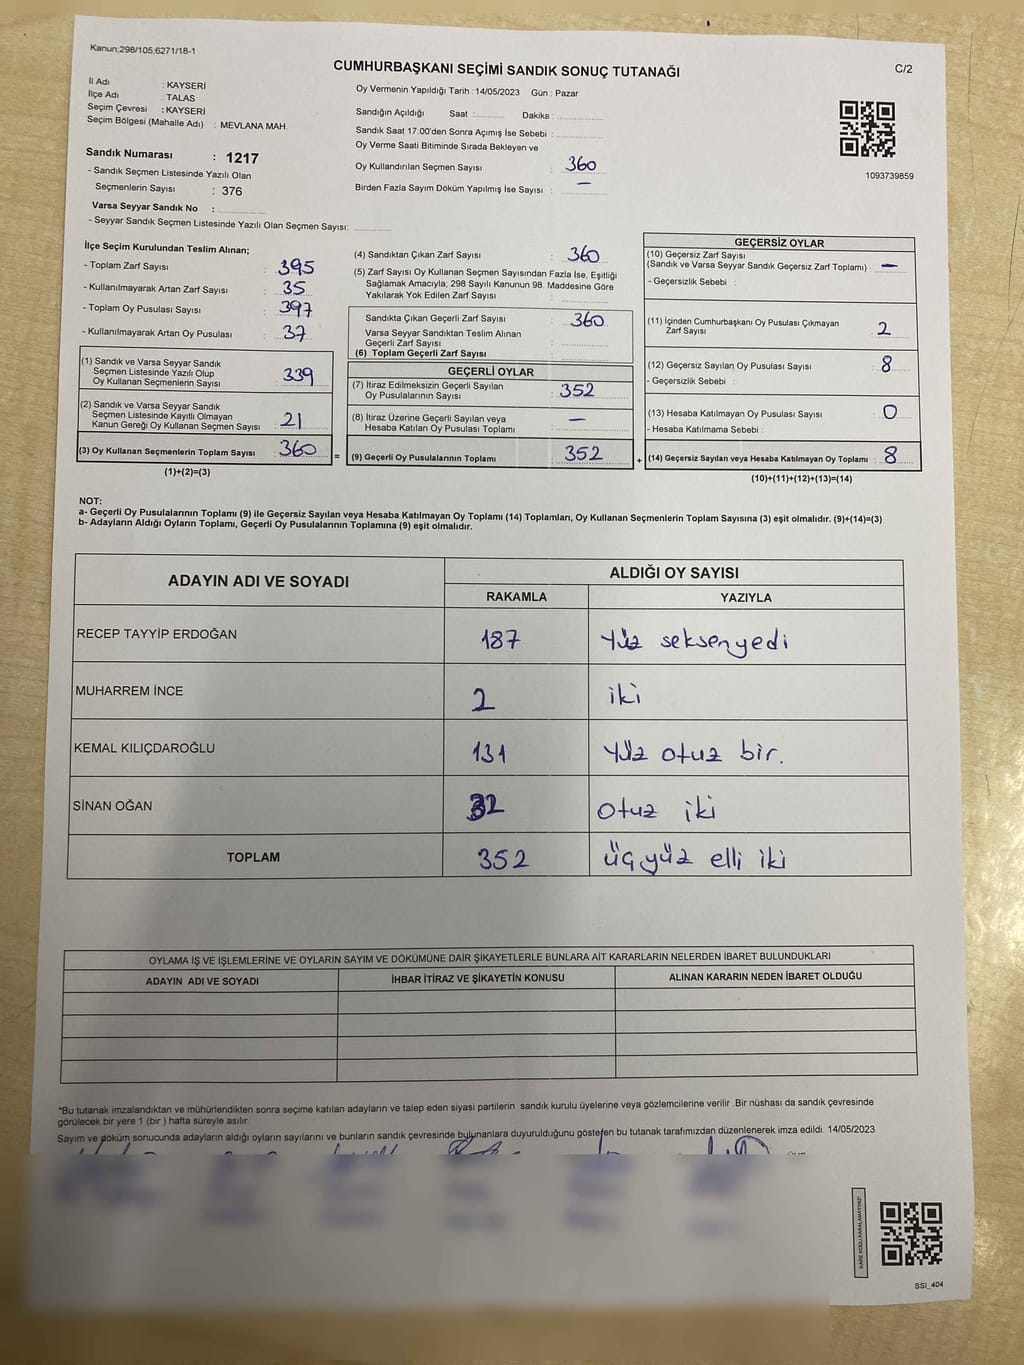 Kanun;298/105,6271/18-1
CUMHURBAŞKANI SEÇİMİ SANDIK SONUÇ TUTANAĞI
C/2
İl Adı : KAYSERİ
İlçe Adı : TALAS
Seçim Çevresi : KAYSERİ
Seçim Bölgesi (Mahalle Adı) : MEVLANA MAH.
Sandık Numarası : 1217
- Sandık Seçmen Listesinde Yazılı Olan
Seçmenlerin Sayısı : 376
Varsa Seyyar Sandık No :
- Seyyar Sandık Seçmen Listesinde Yazılı Olan Seçmen Sayısı:
Oy Vermenin Yapıldığı Tarih : 14/05/2023 Gün : Pazar
Sandığın Açıldığı Saat : Dakika :
Sandık Saat 17:00'den Sonra Açımış İse Sebebi :
Oy Verme Saati Bitiminde Sırada Bekleyen ve
Oy Kullandırılan Seçmen Sayısı : 360
Birden Fazla Sayım Döküm Yapılmış İse Sayısı : —
1093739859
İlçe Seçim Kurulundan Teslim Alınan;
- Toplam Zarf Sayısı : 395
- Kullanılmayarak Artan Zarf Sayısı : 35
- Toplam Oy Pusulası Sayısı : 397
- Kullanılmayarak Artan Oy Pusulası : 37
(1) Sandık ve Varsa Seyyar Sandık
Seçmen Listesinde Yazılı Olup
Oy Kullanan Seçmenlerin Sayısı : 339
(2) Sandık ve Varsa Seyyar Sandık
Seçmen Listesinde Kayıtlı Olmayan
Kanun Gereği Oy Kullanan Seçmen Sayısı : 21
(3) Oy Kullanan Seçmenlerin Toplam Sayısı : 360
(1)+(2)=(3)
(4) Sandıktan Çıkan Zarf Sayısı : 360
(5) Zarf Sayısı Oy Kullanan Seçmen Sayısından Fazla İse, Eşitliği
Sağlamak Amacıyla; 298 Sayılı Kanunun 98. Maddesine Göre
Yakılarak Yok Edilen Zarf Sayısı :
Sandıkta Çıkan Geçerli Zarf Sayısı : 360
Varsa Seyyar Sandıktan Teslim Alınan
Geçerli Zarf Sayısı :
(6) Toplam Geçerli Zarf Sayısı :
GEÇERLİ OYLAR
(7) İtiraz Edilmeksizin Geçerli Sayılan
Oy Pusulalarının Sayısı : 352
(8) İtiraz Üzerine Geçerli Sayılan veya
Hesaba Katılan Oy Pusulası Toplamı : —
= (9) Geçerli Oy Pusulalarının Toplamı : 352
GEÇERSİZ OYLAR
(10) Geçersiz Zarf Sayısı
(Sandık ve Varsa Seyyar Sandık Geçersiz Zarf Toplamı) : —
- Geçersizlik Sebebi :
(11) İçinden Cumhurbaşkanı Oy Pusulası Çıkmayan
Zarf Sayısı : 2
(12) Geçersiz Sayılan Oy Pusulası Sayısı : 8
- Geçersizlik Sebebi :
(13) Hesaba Katılmayan Oy Pusulası Sayısı : 0
- Hesaba Katılmama Sebebi :
+ (14) Geçersiz Sayılan veya Hesaba Katılmayan Oy Toplamı : 8
(10)+(11)+(12)+(13)=(14)
NOT:
a- Geçerli Oy Pusulalarının Toplamı (9) ile Geçersiz Sayılan veya Hesaba Katılmayan Oy Toplamı (14) Toplamları, Oy Kullanan Seçmenlerin Toplam Sayısına (3) eşit olmalıdır. (9)+(14)=(3)
b- Adayların Aldığı Oyların Toplamı, Geçerli Oy Pusulalarının Toplamına (9) eşit olmalıdır.
ADAYIN ADI VE SOYADI ALDIĞI OY SAYISI
RAKAMLA YAZIYLA
RECEP TAYYİP ERDOĞAN 187 Yüz seksenyedi
MUHARREM İNCE 2 iki
KEMAL KILIÇDAROĞLU 131 Yüz otuz bir.
SİNAN OĞAN 32 Otuz iki
TOPLAM 352 üçyüz elli iki
OYLAMA İŞ VE İŞLEMLERİNE VE OYLARIN SAYIM VE DÖKÜMÜNE DAİR ŞİKAYETLERLE BUNLARA AİT KARARLARIN NELERDEN İBARET BULUNDUKLARI
ADAYIN ADI VE SOYADI İHBAR İTİRAZ VE ŞİKAYETİN KONUSU ALINAN KARARIN NEDEN İBARET OLDUĞU
*Bu tutanak imzalandıktan ve mühürlendikten sonra seçime katılan adayların ve talep eden siyasi partilerin sandık kurulu üyelerine veya gözlemcilerine verilir .Bir nüshası da sandık çevresinde
görülecek bir yere 1 (bir ) hafta süreyle asılır.
Sayım ve döküm sonucunda adayların aldığı oyların sayılarını ve bunların sandık çevresinde bulunanlara duyurulduğunu gösteren bu tutanak tarafımızdan düzenlenerek imza edildi. 14/05/2023
KARE KODU KARALAMAYINIZ!
SSI_404